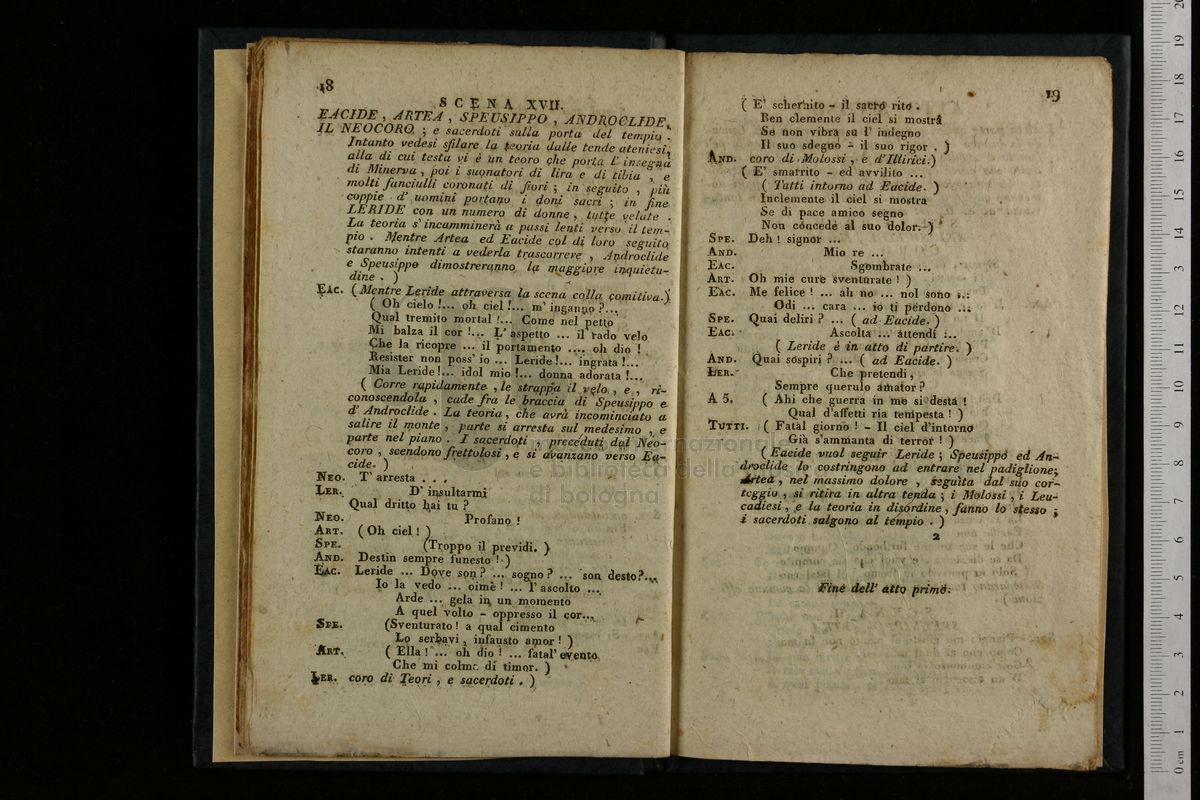 18
SCENA XVII.
EACIDE, ARTEA, SPEUSIPPO, ANDROCLIDE,
IL NEOCORO, ; e sacerdoti sulla porta del tempio.
Intanto vedesi sfilare la teoria dalle tende ateniesi,
alla di cui testa vi è un teoro che porta l' insegna
di Minerva, poi i suonatori di lira e di tibia, e
molti fanciulli coronati di fiori; in seguito, più
coppie d' uomini portano i doni sacri; in fine
LERIDE con un numero di donne, tutte velate.
La teoria s' incamminerà a passi lenti verso il tem-
pio. Mentre Artea ed Eacide col di loro seguito
staranno intenti a vederla trascorrere, Androclide
e Speusippo dimostreranno la maggiore inquietu-
dine. )
EAC. (Mentre Leride attraversa la scena colla comitiva.)
( Oh cielo!... oh ciel!... m' inganno?...
Qual tremito mortal!... Come nel petto
Mi balza il cor!... L' aspetto ... il rado velo
Che la ricopre ... il portamento .... oh dio!
Resister non poss' io ... Leride!... ingrata!...
Mia Leride!... idol mio!... donna adorata!...
( Corre rapidamente, le strappa il velo, e, ri-
conoscendola, cade fra le braccia di Speusippo e
d' Androclide. La teoria, che avrà incominciato a
salire il monte, parte si arresta sul medesimo, e
parte nel piano. I sacerdoti, preceduti dal Neo-
coro, scendono frettolosi, e si avanzano verso Ea-
cide. )
NEO. T' arresta . . .
LER. D' insultarmi
Qual dritto hai tu ?
NEO. Profano !
ART. ( Oh ciel! )
SPE. (Troppo il previdi. )
AND. Destin sempre funesto ! )
EAC. Leride ... Dove son? ... sogno? ... son desto?...
Io la vedo ... oimè! ... l' ascolto ...
Arde ... gela in un momento
A quel volto - oppresso il cor...
SPE. (Sventurato! a qual cimento
Lo serbavi, infausto amor! )
ART. ( Ella! ... oh dio! ... fatal' evento
Che mi colma di timor. )
LER. coro di Teori, e sacerdoti. )
19
( E' schernito - il sacro rito.
Ben clemente il ciel si mostra
Se non vibra su l' indegno
Il suo sdegno - il suo rigor. )
AND. coro di Molossi, e d'Illirici.)
( E' smarrito - ed avvilito ...
( Tutti intorno ad Eacide. )
Inclemente il ciel si mostra
Se di pace amico segno
Non concede al suo dolor. )
SPE. Deh! signor ...
AND. Mio re ...
EAC. Sgombrate ...
ART. Oh mie cure sventurate! )
EAC. Me felice! ... ah no ... nol sono ...
Odi ... cara ... io ti perdono ...
SPE. Quai deliri? ... ( ad Eacide. )
EAC. Ascolta ... attendi ...
( Leride è in atto di partire. )
AND. Quai sospiri? ... ( ad Eacide. )
LER. Che pretendi,
Sempre querulo amator?
A 5. ( Ahi che guerra in me si desta!
Qual d'affetti ria tempesta! )
TUTTI. ( Fatal giorno! - Il ciel d'intorno
Già s'ammanta di terror! )
( Eacide vuol seguir Leride; Speusippo ed An-
droclide lo costringono ad entrare nel padiglione;
Artea, nel massimo dolore, seguita dal suo cor-
teggio, si ritira in altra tenda; i Molossi, i Leu-
cadiesi, e la teoria in disordine, fanno lo stesso;
i sacerdoti salgono al tempio. )
2
Fine dell' atto primo.
internazionale
e biblioteca della
di bologna